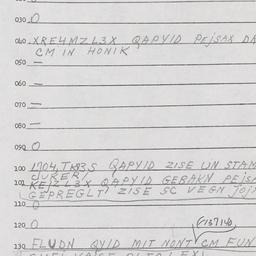 030 O
040 XRE4MZL3X QAPYID PEJSAX DA
CM IN HONIK
050 —
060 —
070 —
080 —
090 O
100 1704,TKB3S QAPYID ZISE UN STAM
JURERY
101 KEJZL3X QAPYID GEBAKN PEJSA
GEPREGLTI ZISE SC VEGN JOJX
110 O
120 O
G137140
130 FLUDN QYID MIT NONT CM FUN